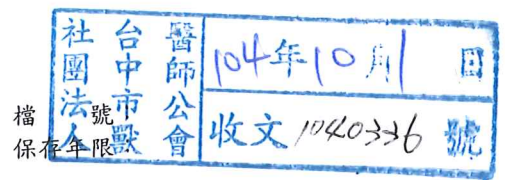 社團法人
台中市獸
醫師公會
104年10月1日
收文1040336號
檔　號：
保存年限：